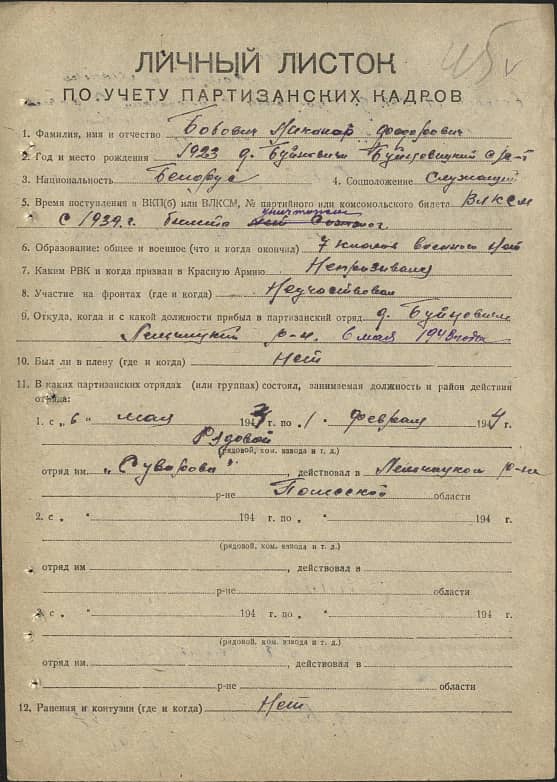 45 v
ЛИЧНЫЙ ЛИСТОК
ПО УЧЕТУ ПАРТИЗАНСКИХ КАДРОВ
1. Фамилия, имя и отчество Бобович Никонор Федорович
2. Год и место рождения 1923 д. Буйновичи
3. Национальность Белорус 4. Соцположение Служащий
5. Время поступления в ВКП(б) или ВЛКСМ, № партийного или комсомольского билета ВЛКСМ
уничтожен
с 1939 г. билета
6. Образование: общее и военное (что и когда окончил) 7 классов военного нет
7. Каким РВК и когда призван в Красную Армию Непризывался
8. Участие на фронтах (где и когда) Неучаствовал
9. Откуда, когда и с какой должности прибыл в партизанский отряд д. Буйновичи
Лельчицкий р-н. 6 мая 1943 года
10. Был ли в плену (где и когда) Нет
11. В каких партизанских отрядах (или группах) состоял, занимаемая должность и район действия
отряда:
1. с „ 6 " мая 1943 г. по „ 1 " февраля 1944 г.
Рядовой
(рядовой, ком. взвода и т. д.)
отряд им. „Суворова", действовал в Лельчицком р-не
р-не Полесской области
2. с „ " 194 г. по „ " 194 г.
(рядовой, ком. взвода и т. д.)
отряд им , действовал в
р-не области
3. с „ " 194 г. по „ " 194 г.
(рядовой, ком. взвода и т. д.)
отряд им. , действовал в
р-не области
12. Ранения и контузии (где и когда) Нет